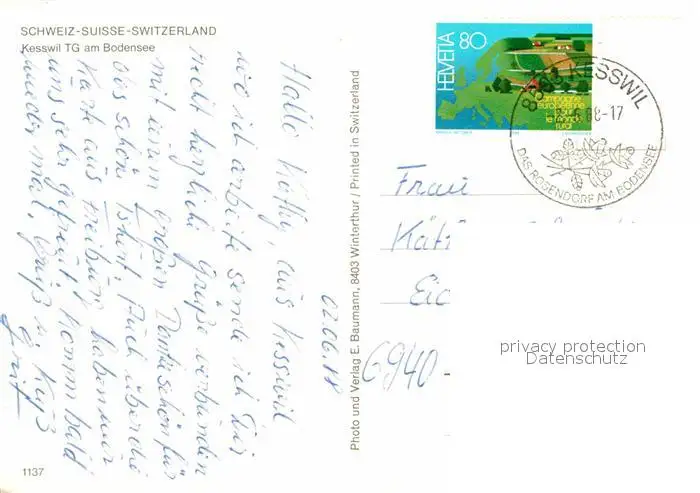 SCHWEIZ-SUISSE-SWITZERLAND
Kesswil TG am Bodensee
Hallo Käthy, aus Kesswil
wo ich arbeite sende ich Dir
recht herzliche Grüße verbunden
mit einem großen Dankeschön für
das schöne Tshirt. Auch über die
Karte aus Freiburg haben wir
uns sehr gefreut. Komm bald
wieder mal. Gruß u. Kuß
02.06.88
1137
Photo und Verlag E. Baumann, 8403 Winterthur / Printed in Switzerland
HELVETIA 80
Campagne
européenne
pour
le monde
rural
KESSWIL
88-17
DAS ROSENDORF AM BODENSEE
Frau
Kät
Eic
6940
privacy protection
Datenschutz